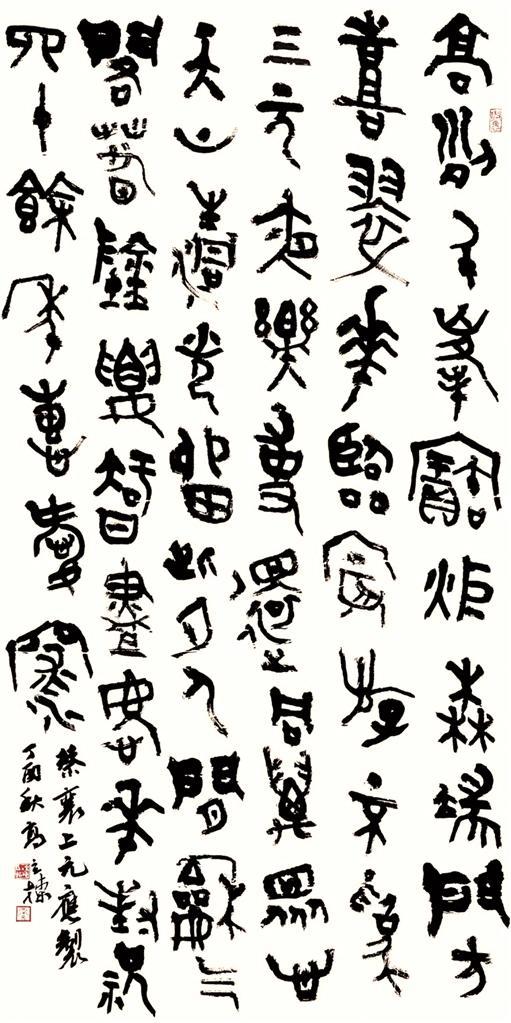 高列千峰寶炬森端門方
喜翠華臨宸遊不為
三元夜樂事還同萬眾心
天上清光留此夕人間和氣
閣春陰要知盡慶華封祝
四十餘年惠愛深
蔡襄上元應製
丁酉秋高